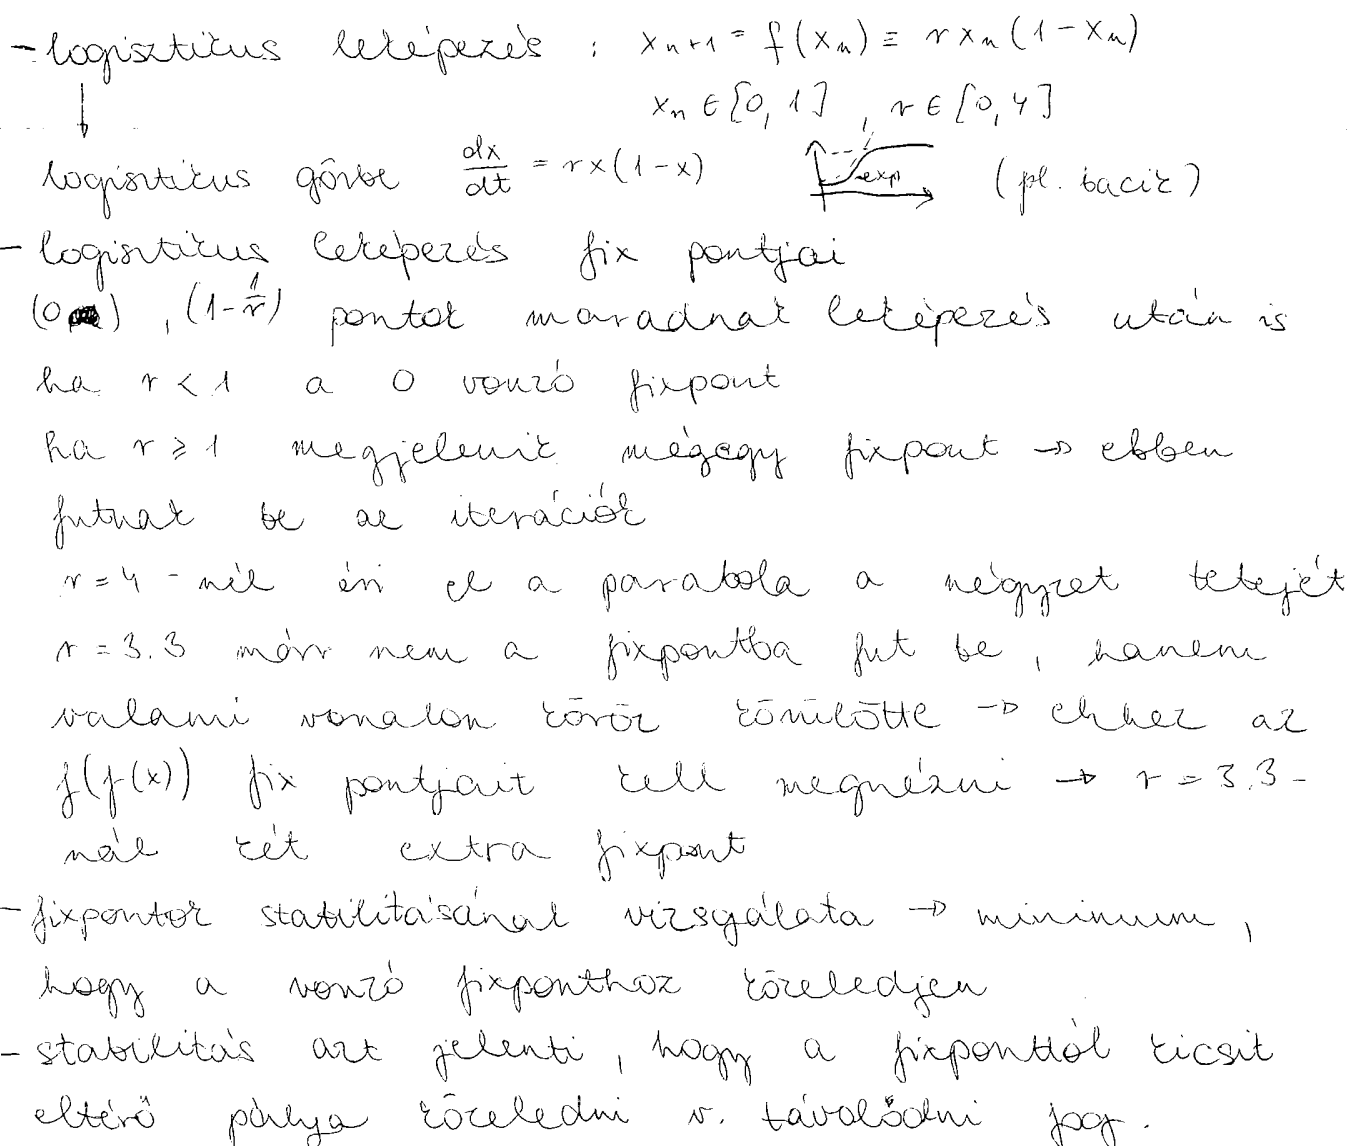 - logisztikus leképezés : x_{n+1} = f(x_n) ≡ r x_n (1 - x_n)
x_n ∈ [0, 1] , r ∈ [0, 4]
↓
logisztikus görbe dx/dt = rx(1-x) exp (pl. bacik)
- logisztikus leképezés fix pontjai
(0) , (1-1/r) pontok maradnak leképezés után is
ha r < 1 a 0 vonzó fixpont
ha r ≥ 1 megjelenik mégegy fixpont → ebben
futnak be az iterációk
r = 4 - nél éri el a parabola a négyzet tetejét
r = 3.3 márr nem a fixpontba fut be , hanem
valami vonalon körör körülötte → ehhez az
f(f(x)) fix pontjait kell megnézni → r = 3.3 -
nál két extra fixpont
- fixpontok stabilitásának vizsgálata → minimum ,
hogy a vonzó fixponthoz közeledjen
- stabilitás azt jelenti , hogy a fixponttól kicsit
eltérő pálya közeledni v. távolodni fog.